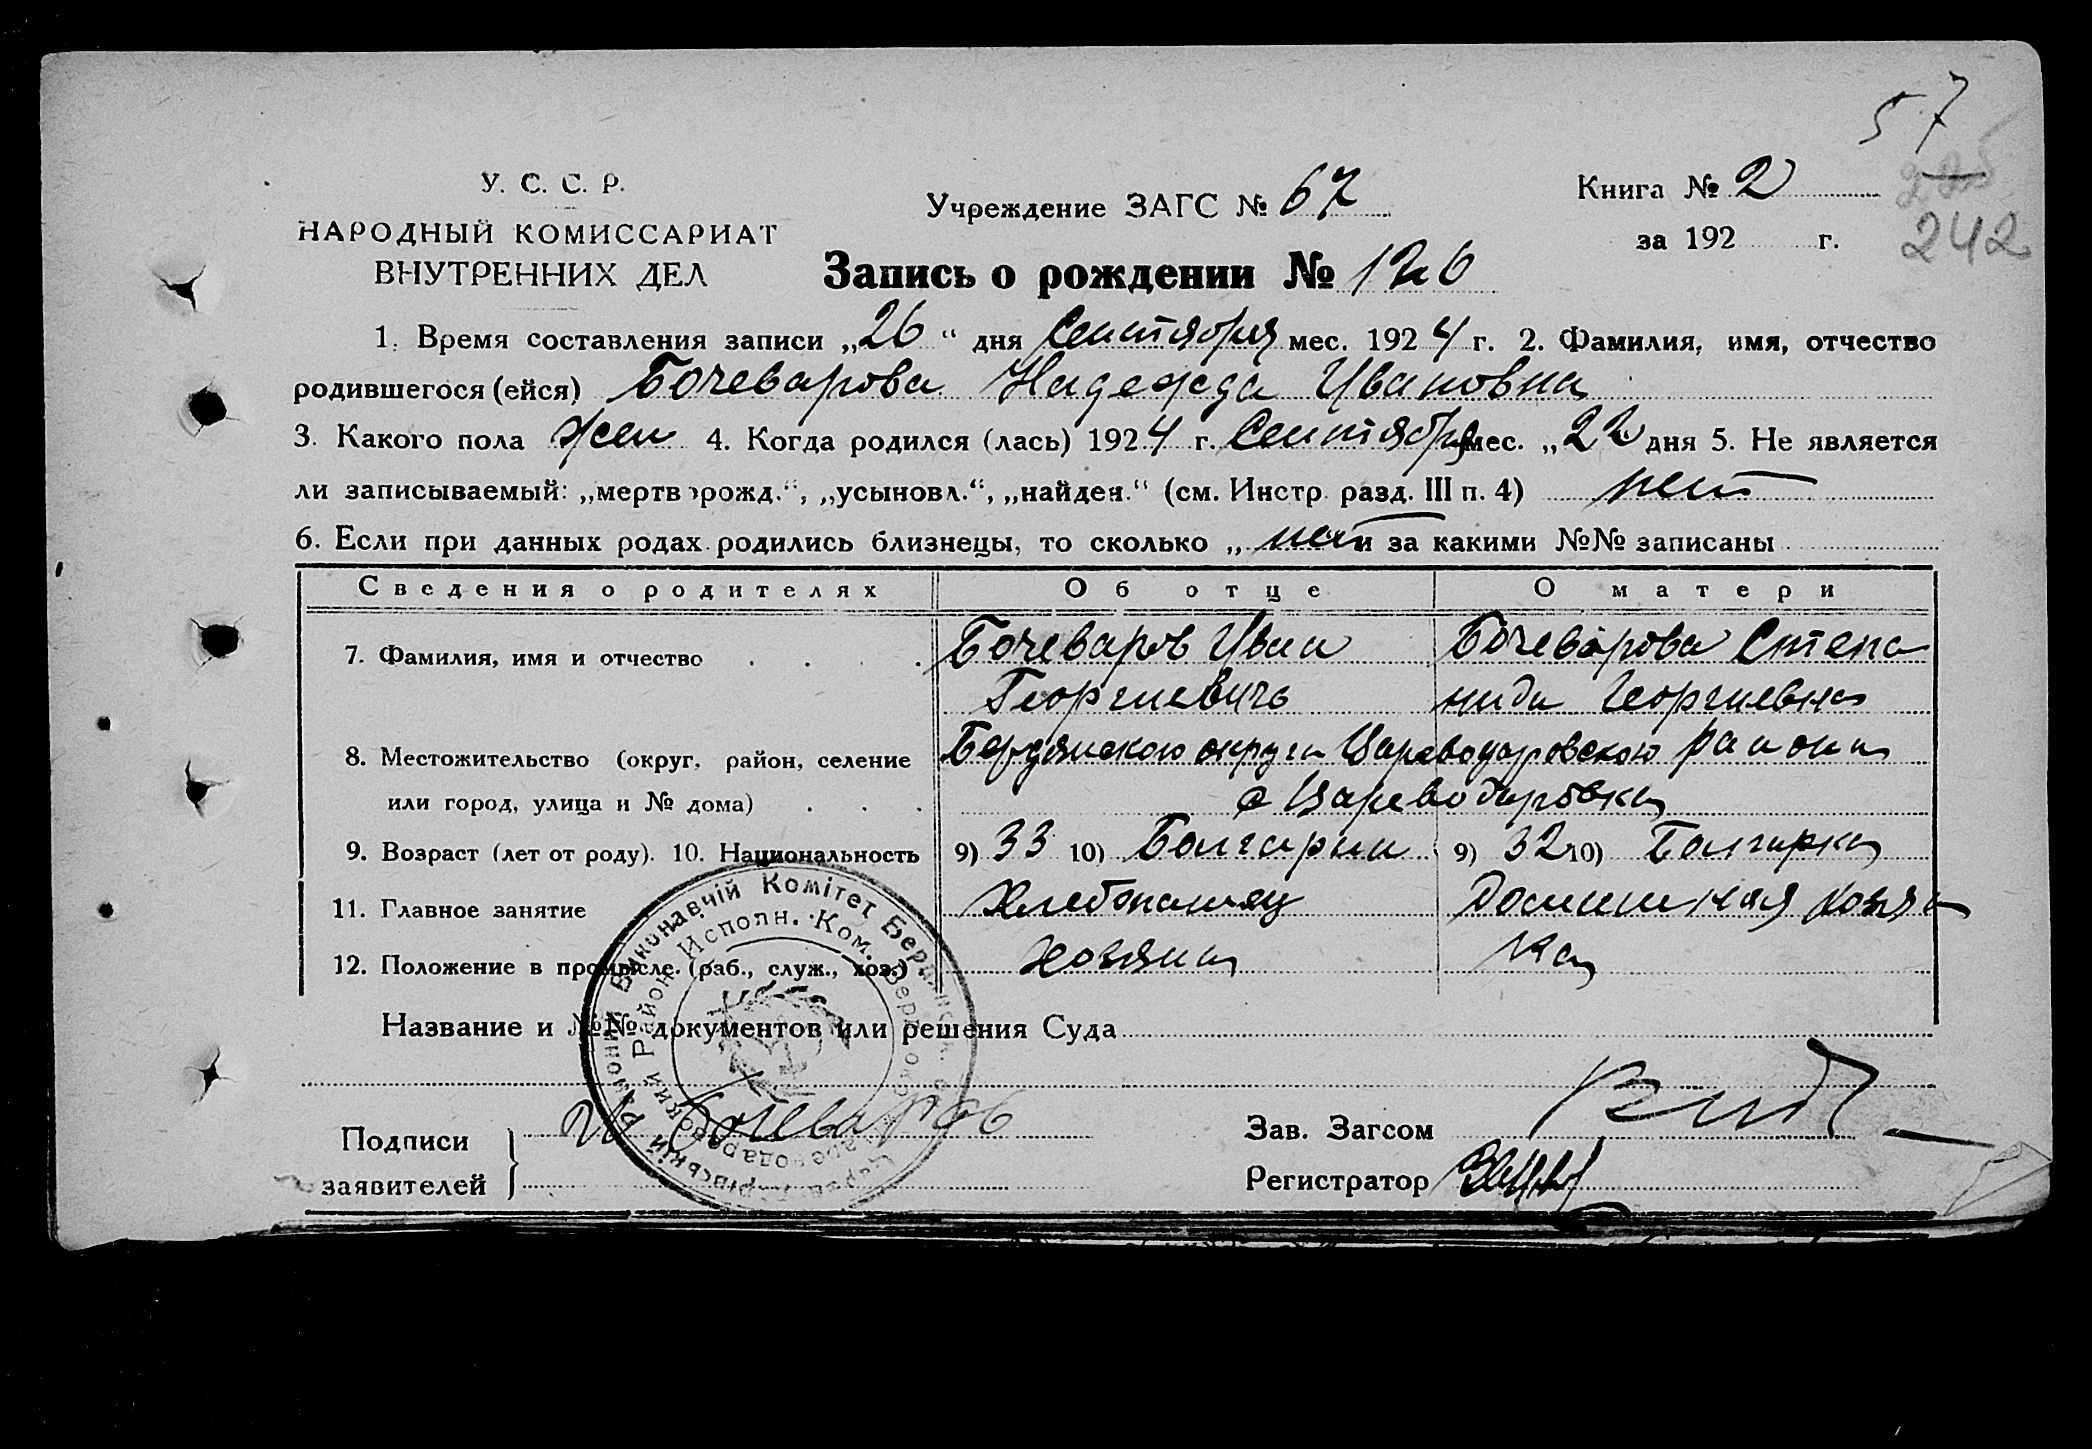 57
225
242
У. С. С. Р.
НАРОДНЫЙ КОМИССАРИАТ
ВНУТРЕННИХ ДЕЛ
Учреждение ЗАГС № 67
Книга № 2
за 192 г.
Запись о рождении № 126
1. Время составления записи „26“ дня Сентября мес. 1924 г. 2. Фамилия, имя, отчество
родившегося (ейся) Бочеварова Надежда Ивановна
3. Какого пола жен 4. Когда родился (лась) 1924 г. Сентября мес. „22 дня 5. Не является
ли записываемый: „мертворожд.“, „усыновл.“, „найден.“ (см. Инстр. разд. III п. 4) нет
6. Если при данных родах родились близнецы, то сколько „ нет и за какими №№ записаны
Сведения о родителях Об отце О матери
7. Фамилия, имя и отчество Бочеваров Иван Бочеварова Степа
Георгиевичъ нида Георгиевна
8. Местожительство (округ, район, селение Бердянского округа Цареводаровского района
или город, улица и № дома) с Цареводаровка
9. Возраст (лет от роду). 10. Национальность 9) 33 10) Болгарин 9) 32 10) Болгарка
11. Главное занятие Хлебопашец Домашняя хозяй
12. Положение в промысле (раб., служ., хоз.) хозяин ка
Название и №№ документов или решения Суда
Виконавчій Комітет
Район. Исполн. Ком.
Подписи
заявителей
И Бочеваров
Зав. Загсом
Регистратор